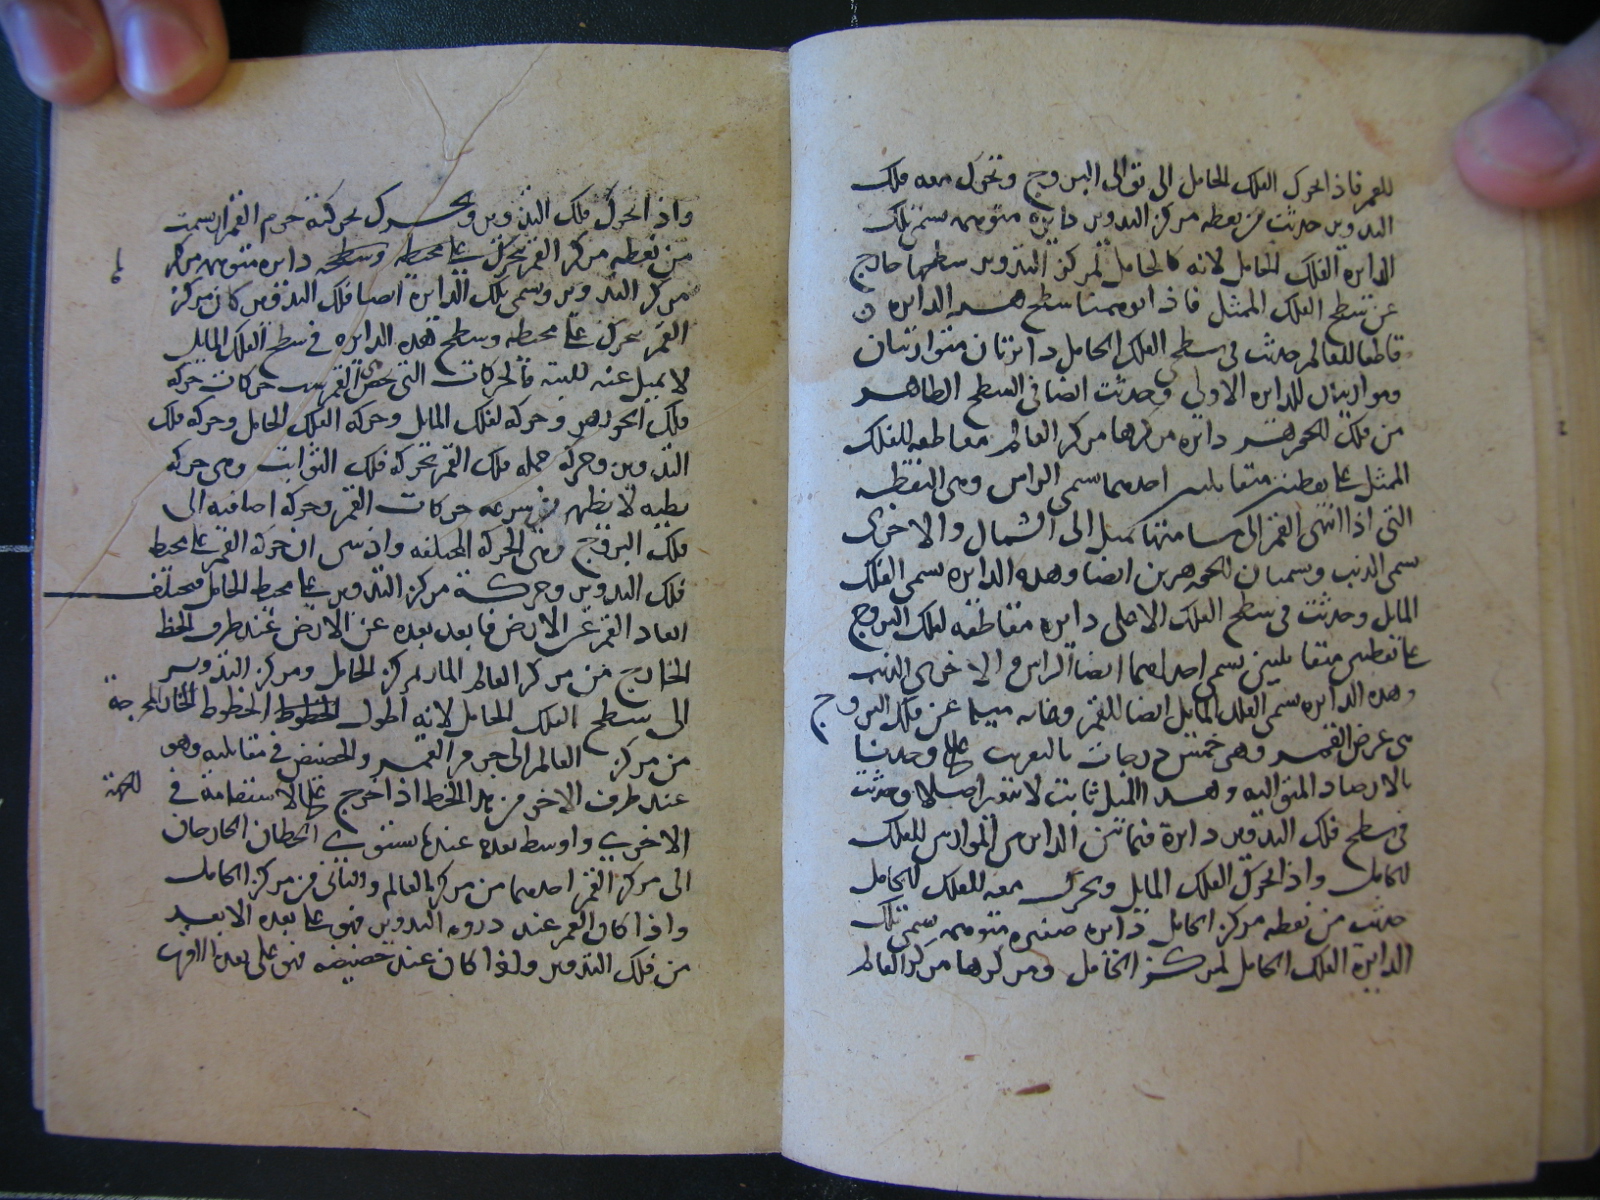 للقمر فاذا تحرك الفلك الحامل الى توالى البروج وتحرك معه فلك
التدوير حدثت من نقطه مركز التدوير دايره متوهمه سمى تلك
الدايره الفلك الحامل لانه كالحامل لمركز التدوير سطحها خارج
عن سطح الفلك الممثل فاذا توهمنا سطح هذه الدايره
قاطعا للعالم حدثت فى سطحى الفلك الحامل دايرتان متوازيتان
وموازيتان للدايره الاولى وحدثت ايضا فى السطح الظاهر
من فلك الجوزهر دايره مركزها مركز العالم مقاطعه للفلك
الممثل على نقطتين متقابلتين احدهما سمى الراس وهى النقطه
التى اذا انتهى القمر الى مسامتتها كميل الى الشمال والاخرى
سمى الذنب وسميان الجوزهرين ايضا وهذه الدايره سمى الفلك
المايل وحدثت فى سطح الفلك الاعلى دايره مقاطعه لفلك البروج
على نقطتين متقابلتين سمى احداهما ايضا الراس والاخرى الذنب
وهذه الدايره سمى الفلك المايل ايضا للقمر وغايه ميلها عن فلك البروج
هى عرض القمر وهى خمس درجات بالتقريب على ما وجدنا
بالارصاد المتواليه وهذا الميل ثابت لا يتغير اصلا وحدثت
فى سطح فلك التدوير دايرة فيما بين الدايرتين الموازيتين للفلك
الحامل واذا تحرك الفلك المايل وتحرك معه الفلك الحامل
حدثت من نقطه مركز الحامل دايره صغيره متوهمه سمى تلك
الدايرة الفلك الحامل لمركز الحامل ومركزها مركز العالم
واذا تحرك فلك التدوير وتحرك بحركته جرم القمر ارتسمت
من نقطه مركز القمر دايره متوهمه مركزها
مركز التدوير وسمى تلك الدايره ايضا فلك التدوير كان مركز
القمر يتحرك على محيطه وسطح هذه الدايره فى سطح الفلك المايل
لا يميل عنه البته فالحركات التى تخص القمر ست حركات حركه
فلك الجوزهر وحركه الفلك المايل وحركه الفلك الحامل وحركه فلك
التدوير وحركه جمله فلك القمر بحركه فلك الثوابت وهى حركه
بطيه لا تظهر من سرعه حركات القمر وحركه اضافيه الى
فلك البروج وهى الحركه المختلفه واذ تبين ان حركه القمر على محيط
فلك التدوير وحركة مركز التدوير على محيط الحامل فتختلف
ابعاد القمر عن الارض فابعد بعده عن الارض عند طرف الخط
الخارج من مركز العالم المار بمركز الحامل ومركز التدوير
الى سطح الفلك الحامل لانه اطول الخطوط الخارجة
من مركز العالم الى جرم القمر والحضيض فى مقابلته وهو
عند طرف الاخر من هذا الخط اذا اخرج على الاستقامة فى الجهة
الاخرى واوسط بعده عندما يستوى الخطان الخارجان
الى مركز القمر احدهما من مركز العالم والثانى من مركز الحامل
واذا كان القمر عند ذروه التدوير فهو على بعده الابعد
من فلك التدوير واذا كان عند حضيضه فهو على بعده الاقرب